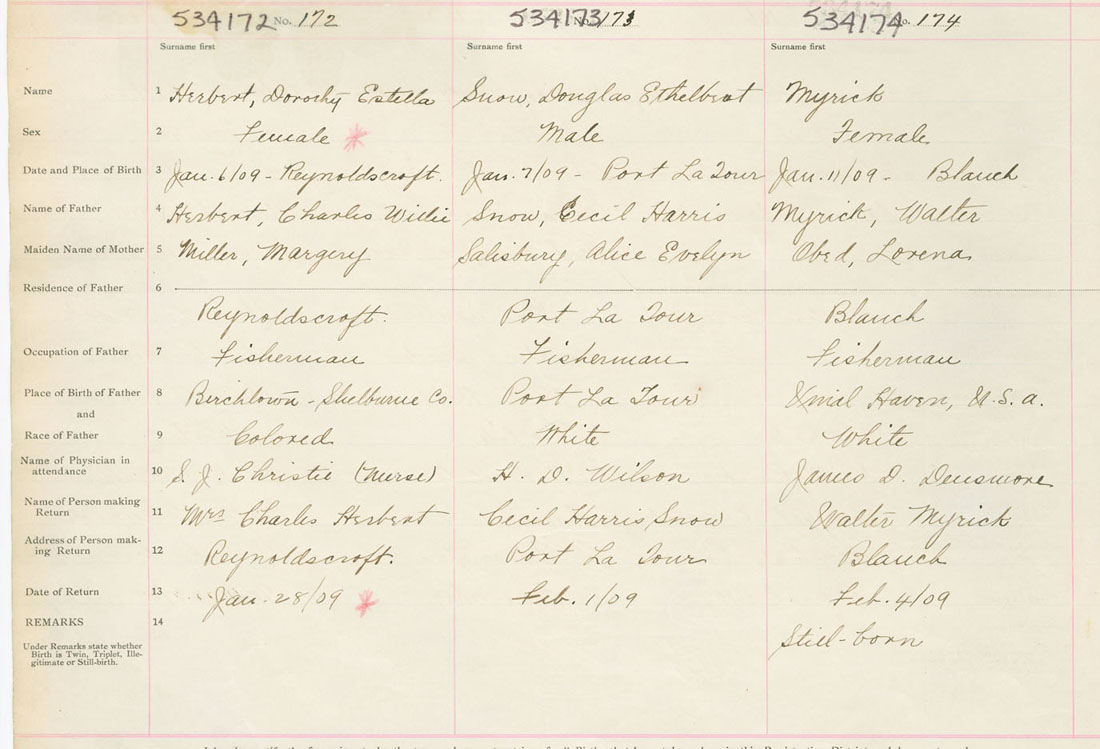 534172 No. 172 534173 No. 173 534174 No. 174
Surname first Surname first Surname first
Name 1 Herbert, Dorothy Estella Snow, Douglas Ethelbert Myrick
Sex 2 Female Male Female
Date and Place of Birth 3 Jan. 6/09 - Reynoldscroft. Jan. 7/09 - Port La Tour Jan. 11/09 - Blanch
Name of Father 4 Herbert, Charles Willie Snow, Cecil Harris Myrick, Walter
Maiden Name of Mother 5 Miller, Margery Salisbury, Alice Evelyn Obed, Lorena
Residence of Father 6
Reynoldscroft. Port La Tour Blanch
Occupation of Father 7 Fisherman Fisherman Fisherman
Place of Birth of Father 8 Birchtown - Shelburne Co. Port La Tour Haven, U.S.a.
and
Race of Father 9 Colored White White
Name of Physician in
attendance 10 S. J. Christie (Nurse) H. D. Wilson James D. Densmore
Name of Person making
Return 11 Mrs Charles Herbert Cecil Harris Snow Walter Myrick
Address of Person mak-
ing Return 12 Reynoldscroft. Port La Tour Blanch
Date of Return 13 Jan. 28/09 Feb. 1/09 Feb. 4/09
REMARKS 14
Still-born
Under Remarks state whether
Birth is Twin, Triplet, Ille-
gitimate or Still-birth.